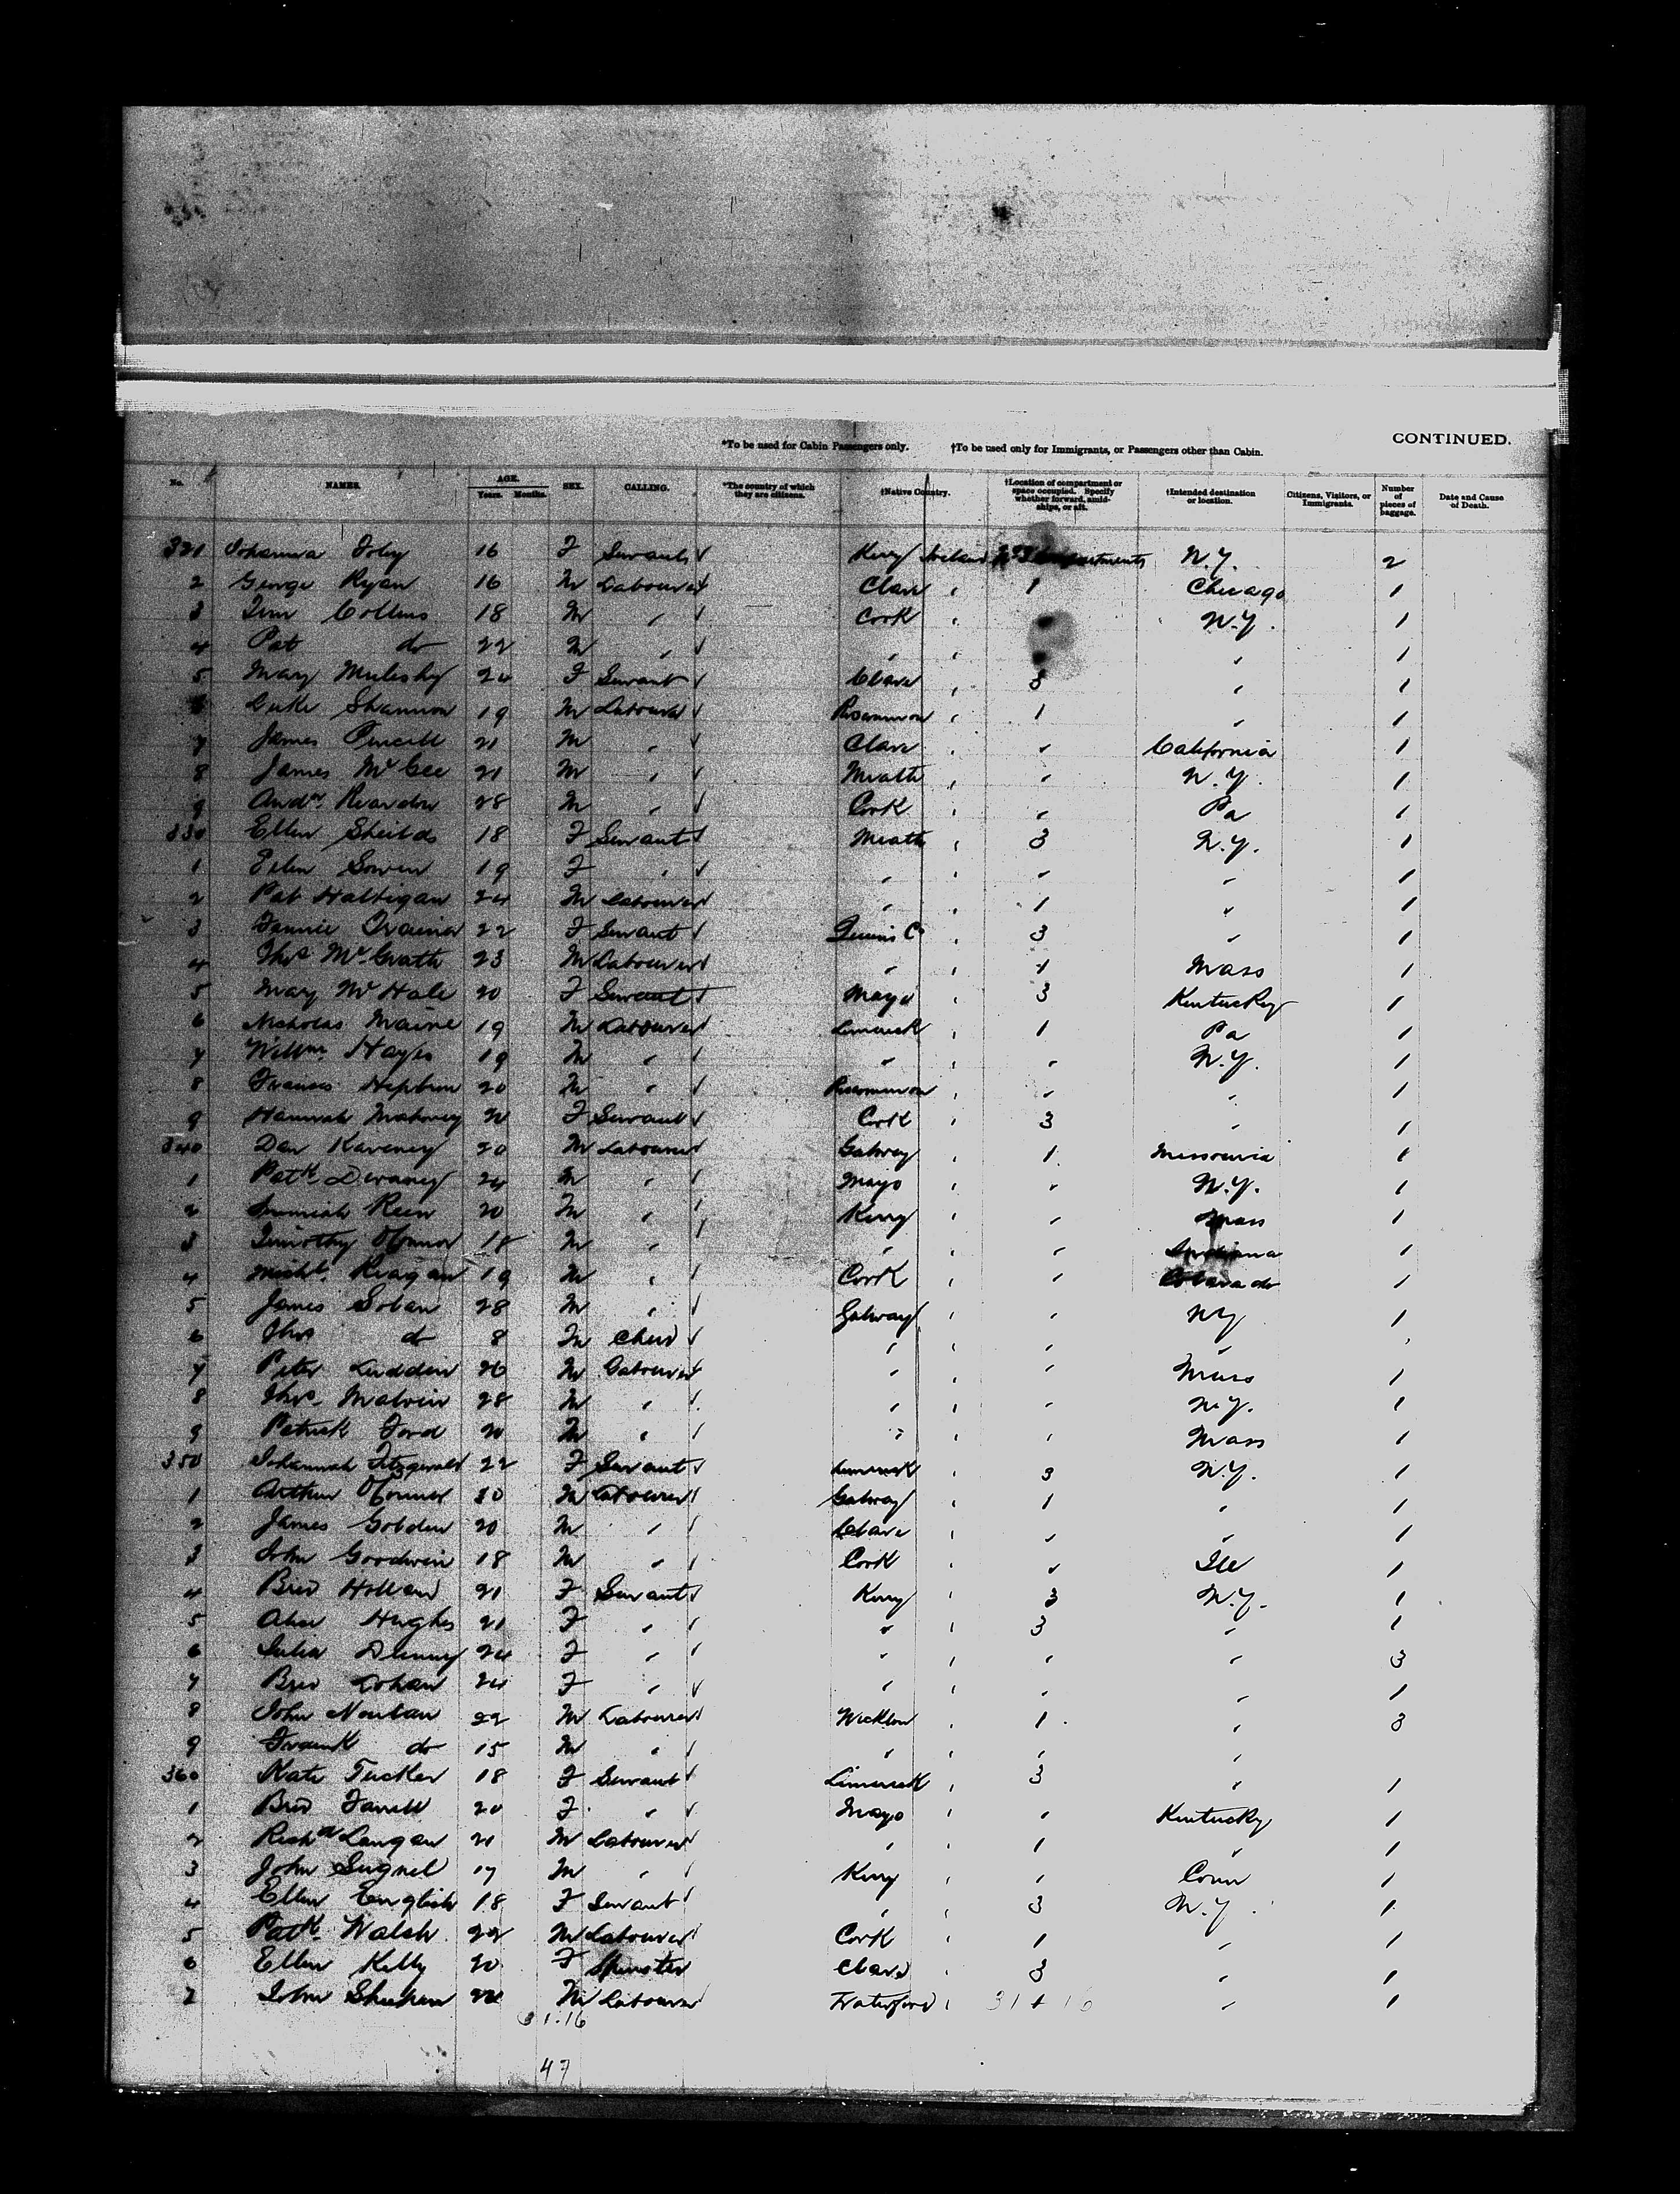 CONTINUED.
*To be used for Cabin Passengers only. †To be used only for Immigrants, or Passengers other than Cabin.
No. NAMES. AGE. Years. Months. SEX. CALLING. *The country of which they are citizens. †Native Country. †Location of compartment or space occupied. Specify whether forward, amidships, or aft. †Intended destination or location. Citizens, Visitors, or Immigrants. Number of pieces of baggage. Date and Cause of Death.
321 Johanna Foley 16 F Servant Kerry Ireland N.Y. 2
2 George Ryan 16 M Labourer Clare " 1 Chicago 1
3 Tim Collins 18 M " Cork " N.Y. 1
4 Pat do 22 M " " " " 1
5 Mary 24 F Servant Clare " 3 " 1
Luke Shannon 19 M Labourer Roscommon " 1 " 1
7 James Purcell 21 M " Clare " " California 1
8 James McGee 21 M " Meath " " N.Y. 1
9 Andw Reardon 28 M " Cork " " Pa 1
330 Ellen Sheilds 18 F Servant Meath " 3 N.Y. 1
1 Ellen 19 F " " " " " 1
2 Pat Hattigan 24 M Labourer " " 1 " 1
3 Fannie Trainor 22 F Servant Queens Co " 3 " 1
4 Thos McGrath 23 M Labourer " " 1 Mass 1
5 Mary McHale 20 F Servant Mayo " 3 Kentucky 1
6 Nicholas Maine 19 M Labourer Limerick " 1 Pa 1
7 Willm Hayes 19 M " " " N.Y. 1
8 Francis Hepburn 20 M " Roscommon " " 1
9 Hannah Mahoney F Servant Cork " 3 " 1
340 Dan Kaveney 20 M Labourer Galway " 1 Missouria 1
1 Patk Devaney 24 M " Mayo " " N.Y. 1
2 Jeremiah 20 M " Kerry " " Mass 1
3 Timothy OConnor 18 M " " " Indiana 1
4 Michl Reagan 19 M " Cork " " Colorado 1
5 James 28 M " Galway " " NY 1
6 Thos do 8 M Child " " " "
7 Peter Luddin 26 M Labourer " " " Mass 1
8 Thos 28 M " " " " N.Y. 1
9 Patrick Ford M " " " " Mass 1
350 Johannah Fitzgerald 22 F Servant Limerick " 3 N.Y. 1
1 Arthur OConnor 30 M Labourer Galway " 1 " 1
2 James Golden 20 M " Clare " " " 1
3 John Goodwin 18 M " Cork " " Ill 1
4 Brid Holland 21 F Servant Kerry " 3 N.Y. 1
5 Alice Hughes 21 F " " 3 " 1
6 Julia 24 F " " " " 3
7 Brid Cohan 24 F " " " " " 1
8 John 22 M Labourer Wicklow " 1 " 3
9 Frank do 15 M " " " " "
360 Kate Tucker 18 F Servant Limerick " 3 " 1
1 Brid Farrell 20 F " Mayo " " Kentucky 1
2 Richd Langan 21 M Labourer " " 1 " 1
3 John 17 M " Kerry " " Conn 1
4 Ellen English 18 F Servant " " 3 N.Y. 1
5 Patk Walsh 22 M Labourer Cork " 1 " 1
6 Ellen Kelly 20 F Spinster Clare " 3 " 1
7 John Sheehan 22 M Labourer Waterford " 31 + 16 " 1
31.16
47